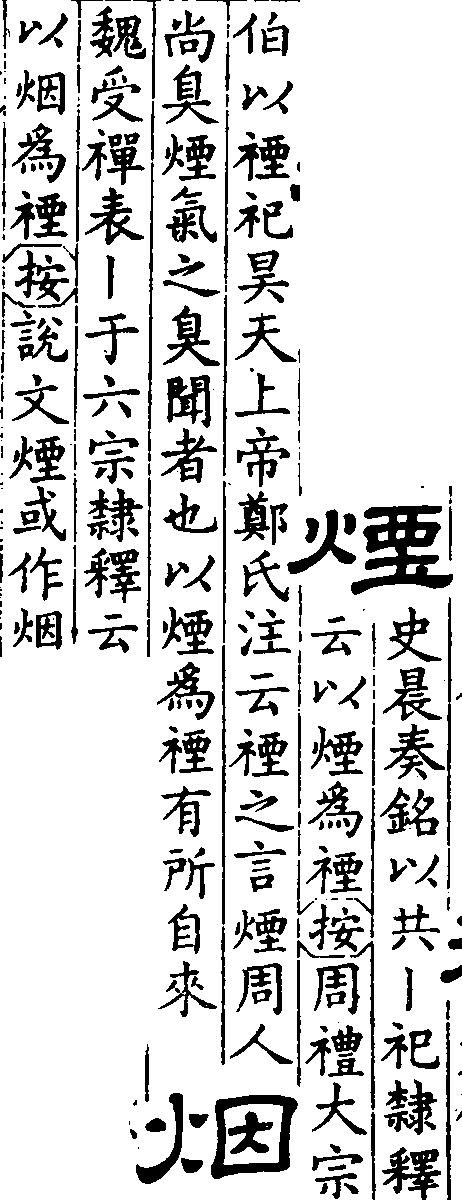 煙
史晨奏銘以共丨祀隸釋
云以煙爲禋按周禮大宗
伯以禋祀昊天上帝鄭氏注云禋之言煙周人
尚臭煙氣之臭聞者也以煙爲禋有所自來
烟
魏受禪表丨于六宗隸釋云
以烟爲禋按說文煙或作烟